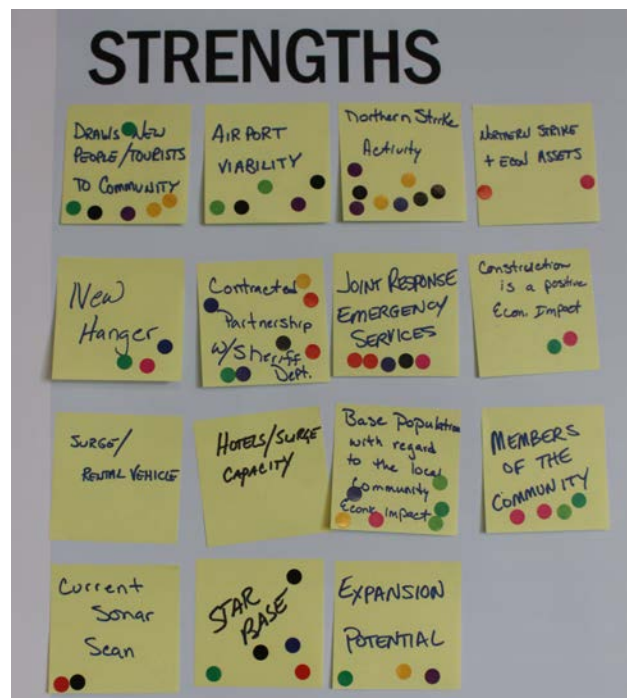 STRENGTHS
DRAWS NEW
PEOPLE/TOURISTS
TO COMMUNITY
AIRPORT
VIABILITY
Northern Strike
Activity
NORTHERN STRIKE
+ ECON ASSETS
New
Hanger
Contracted
Partnership
w/Sherriff
Dept.
JOINT RESPONSE
EMERGENCY
SERVICES
Construction
is a positive
Econ. Impact
SURGE/
RENTAL VEHICLE
HOTELS/SURGE
CAPACITY
Base Population
with regard
to the local
Community
Econ Impact
MEMBERS
OF THE
COMMUNITY
Current
Sonar
Scan
STAR
BASE
EXPANSION
POTENTIAL